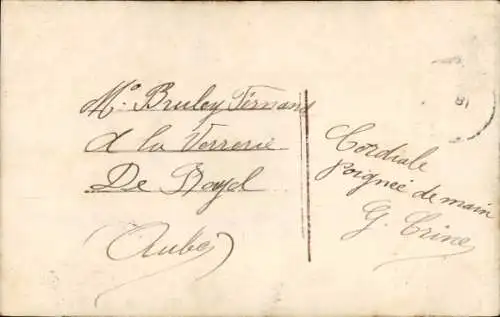 Mr. Bruley Fernand
A la Verrerie
De Bayel
(Aube)
Cordiale
poignée de main
G. Crine